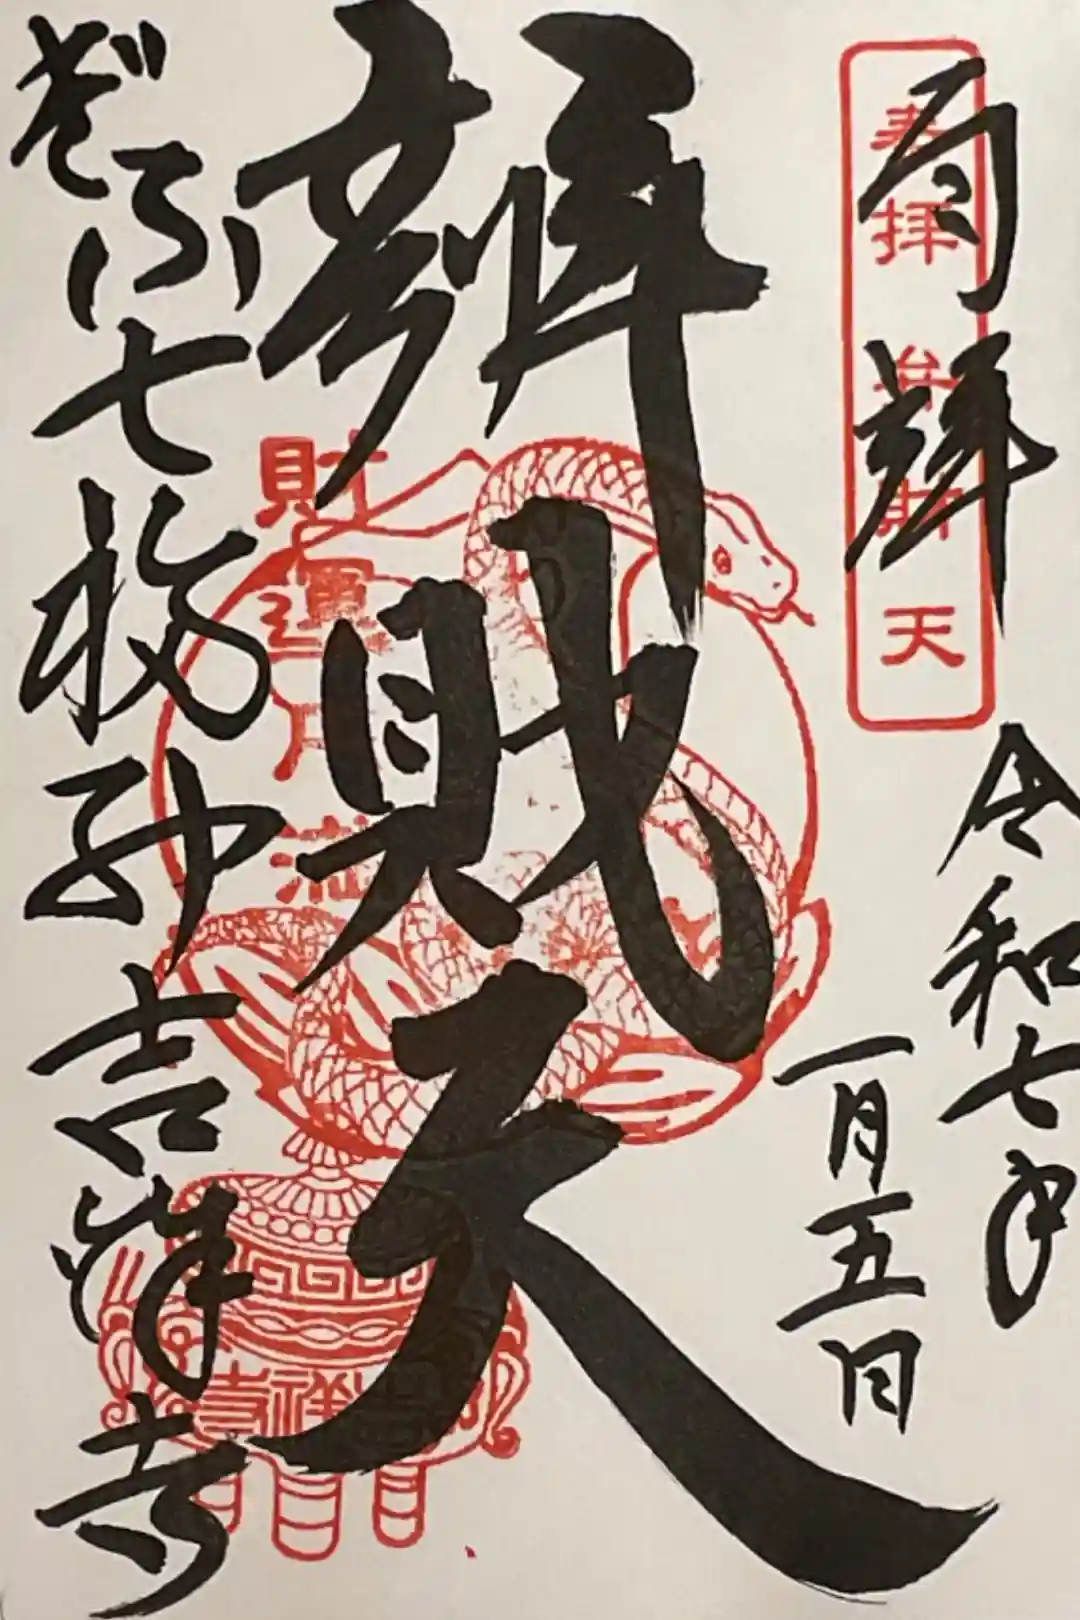 奉拝 弁財天
拜
令和七年
一月五日
辨財天
財運円満
ぎふ七福神 吉祥寺
吉祥寺